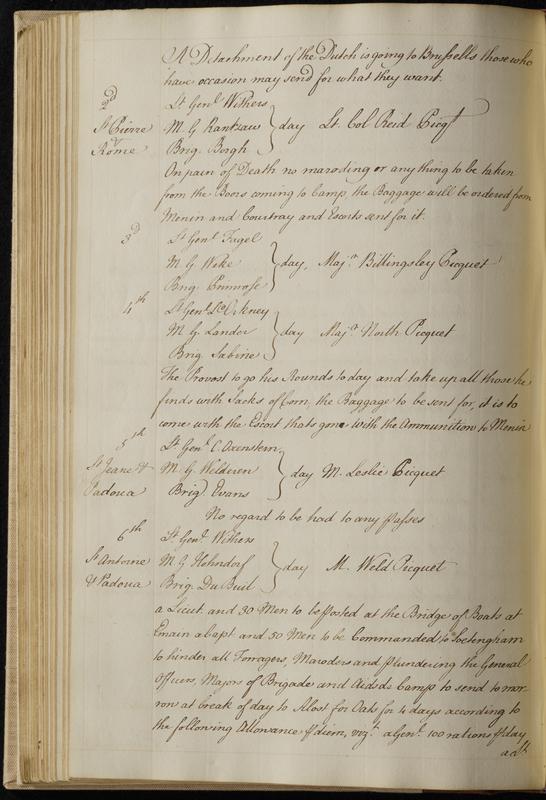 A Detachment of the Dutch is going to Brussells those who
have occasion may send for what they want.
2d
Lt Genl Withers
St Pierre
M. G Rantzaw } day Lt. Col Reid Picqt
& Rome
Brig. Borgh
On pain of Death no maroding or any thing to be taken
from the Boors coming to Camp, the Baggage will be ordered from
Menin and Courtray and Escorts sent for it.
3d
Lt Genl Fagel
M G Weke } day, Majr Billingsley Picquet
Brig Primrose
4th
Lt Genl Ld Orkney
M. G. Lander } day Majr North Picquet
Brig Sabine
The Provost to go his Rounds to day and take up all those he
finds with Sacks of Corn, the Baggage to be sent for, it is to
come with the Escort thats gone with the Ammunition to Menin
5th
Lt. Genl C. Oxenstern
St Jeane &
M. G Welderen } day M. Leslie Picquet
Padoua
Brigd. Evans
No regard to be had to any passes
6th
Lt. Genl. Withers
St Antoine
M. G Hohndorf } day M. Weld Picquet
& Padoua
Brig. Du Buil
a Lieut and 30 Men to be posted at the Bridge of Boats at
a Capt and 50 Men to be Commanded to
to hinder all Forragers, Maroders and plundering the General
Officers, Majors of Brigade and Aids de Camp to send to mor
row at break of day to Alost for Oats for 4 days according to
the following Allowance p diem, vizt. a Genl. 100 rations p day
a Lt